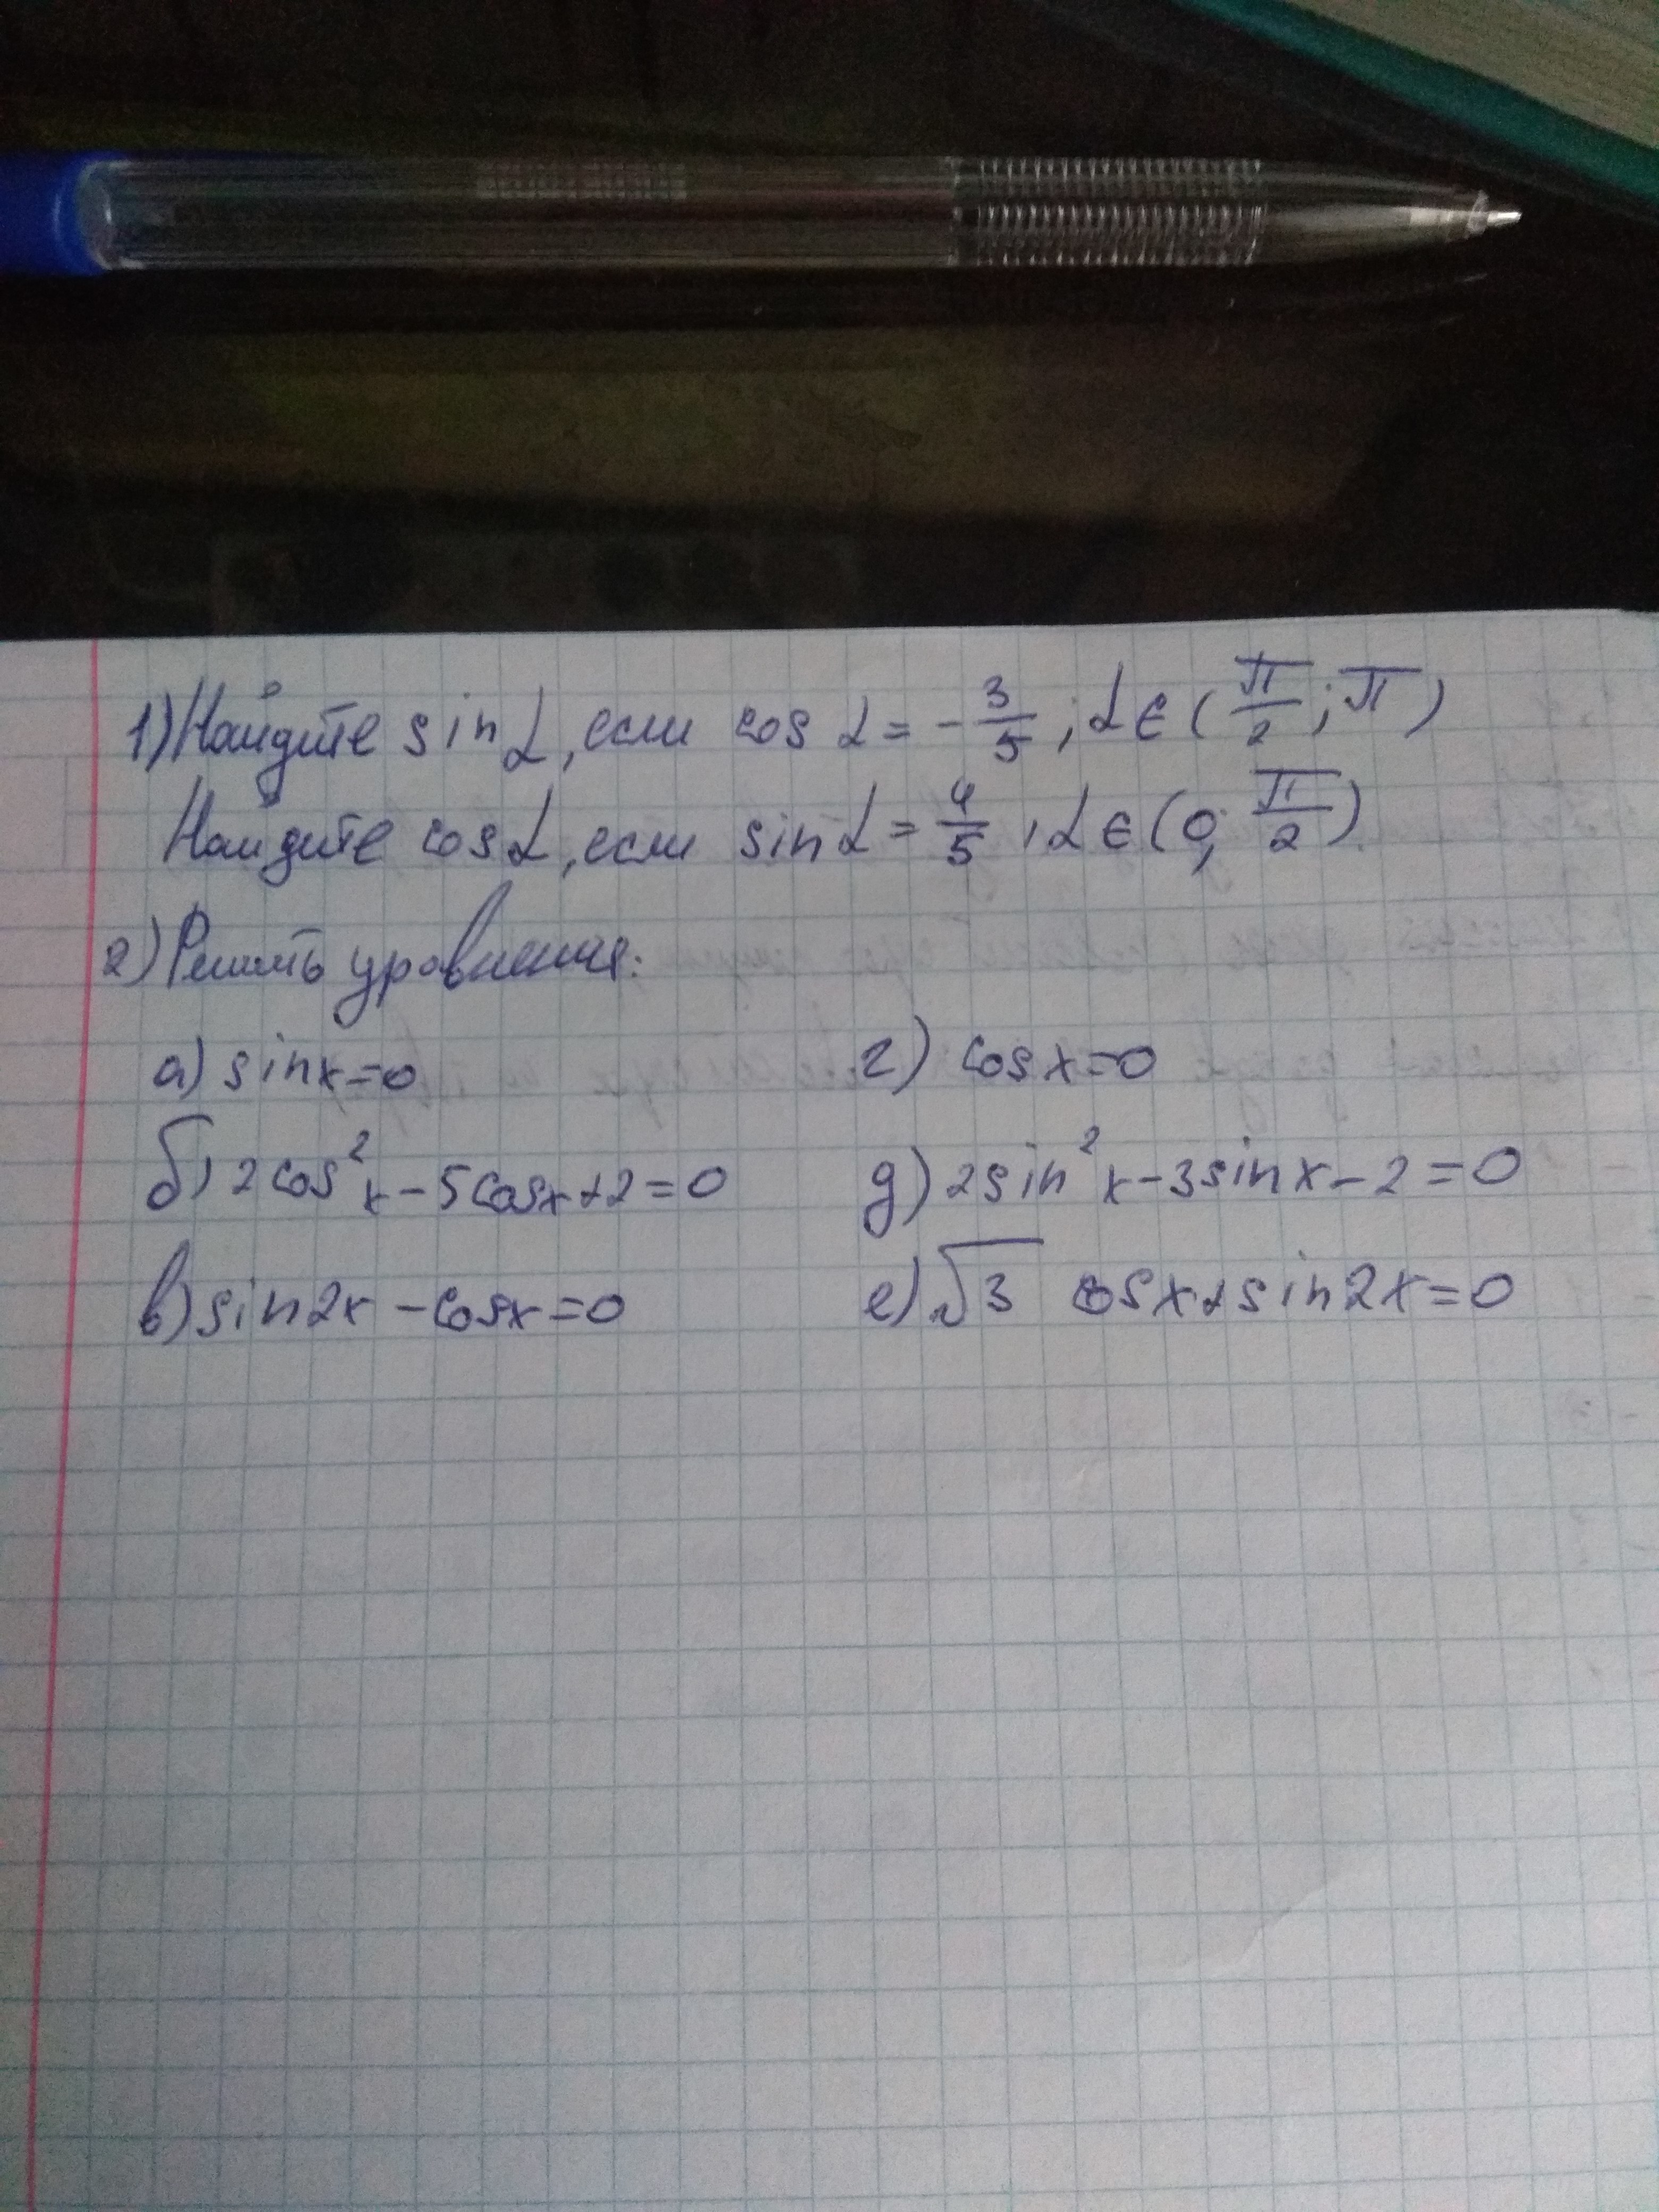 1) Найдите sin α, если cos α = -3/5; α ∈ (π/2; π)
Найдите cos α, если sin α = 4/5, α ∈ (0; π/2)
2) Решить уравнения:
а) sinx=0
г) cosx=0
б) 2cos²x-5cosx+2=0
д) 2sin²x-3sinx-2=0
в) sin2x-cosx=0
е) √3 cosx+sin2x=0